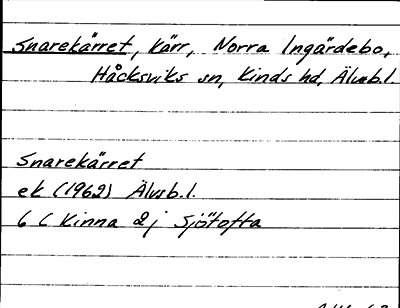 Snarekärret, kärr, Norra Ingärdebo,
Håcksviks sn, Kinds hd, Älvsb.l.
Snarekärret
ek (1962) Älvsb.l.
6 C Kinna 2j Sjötofta